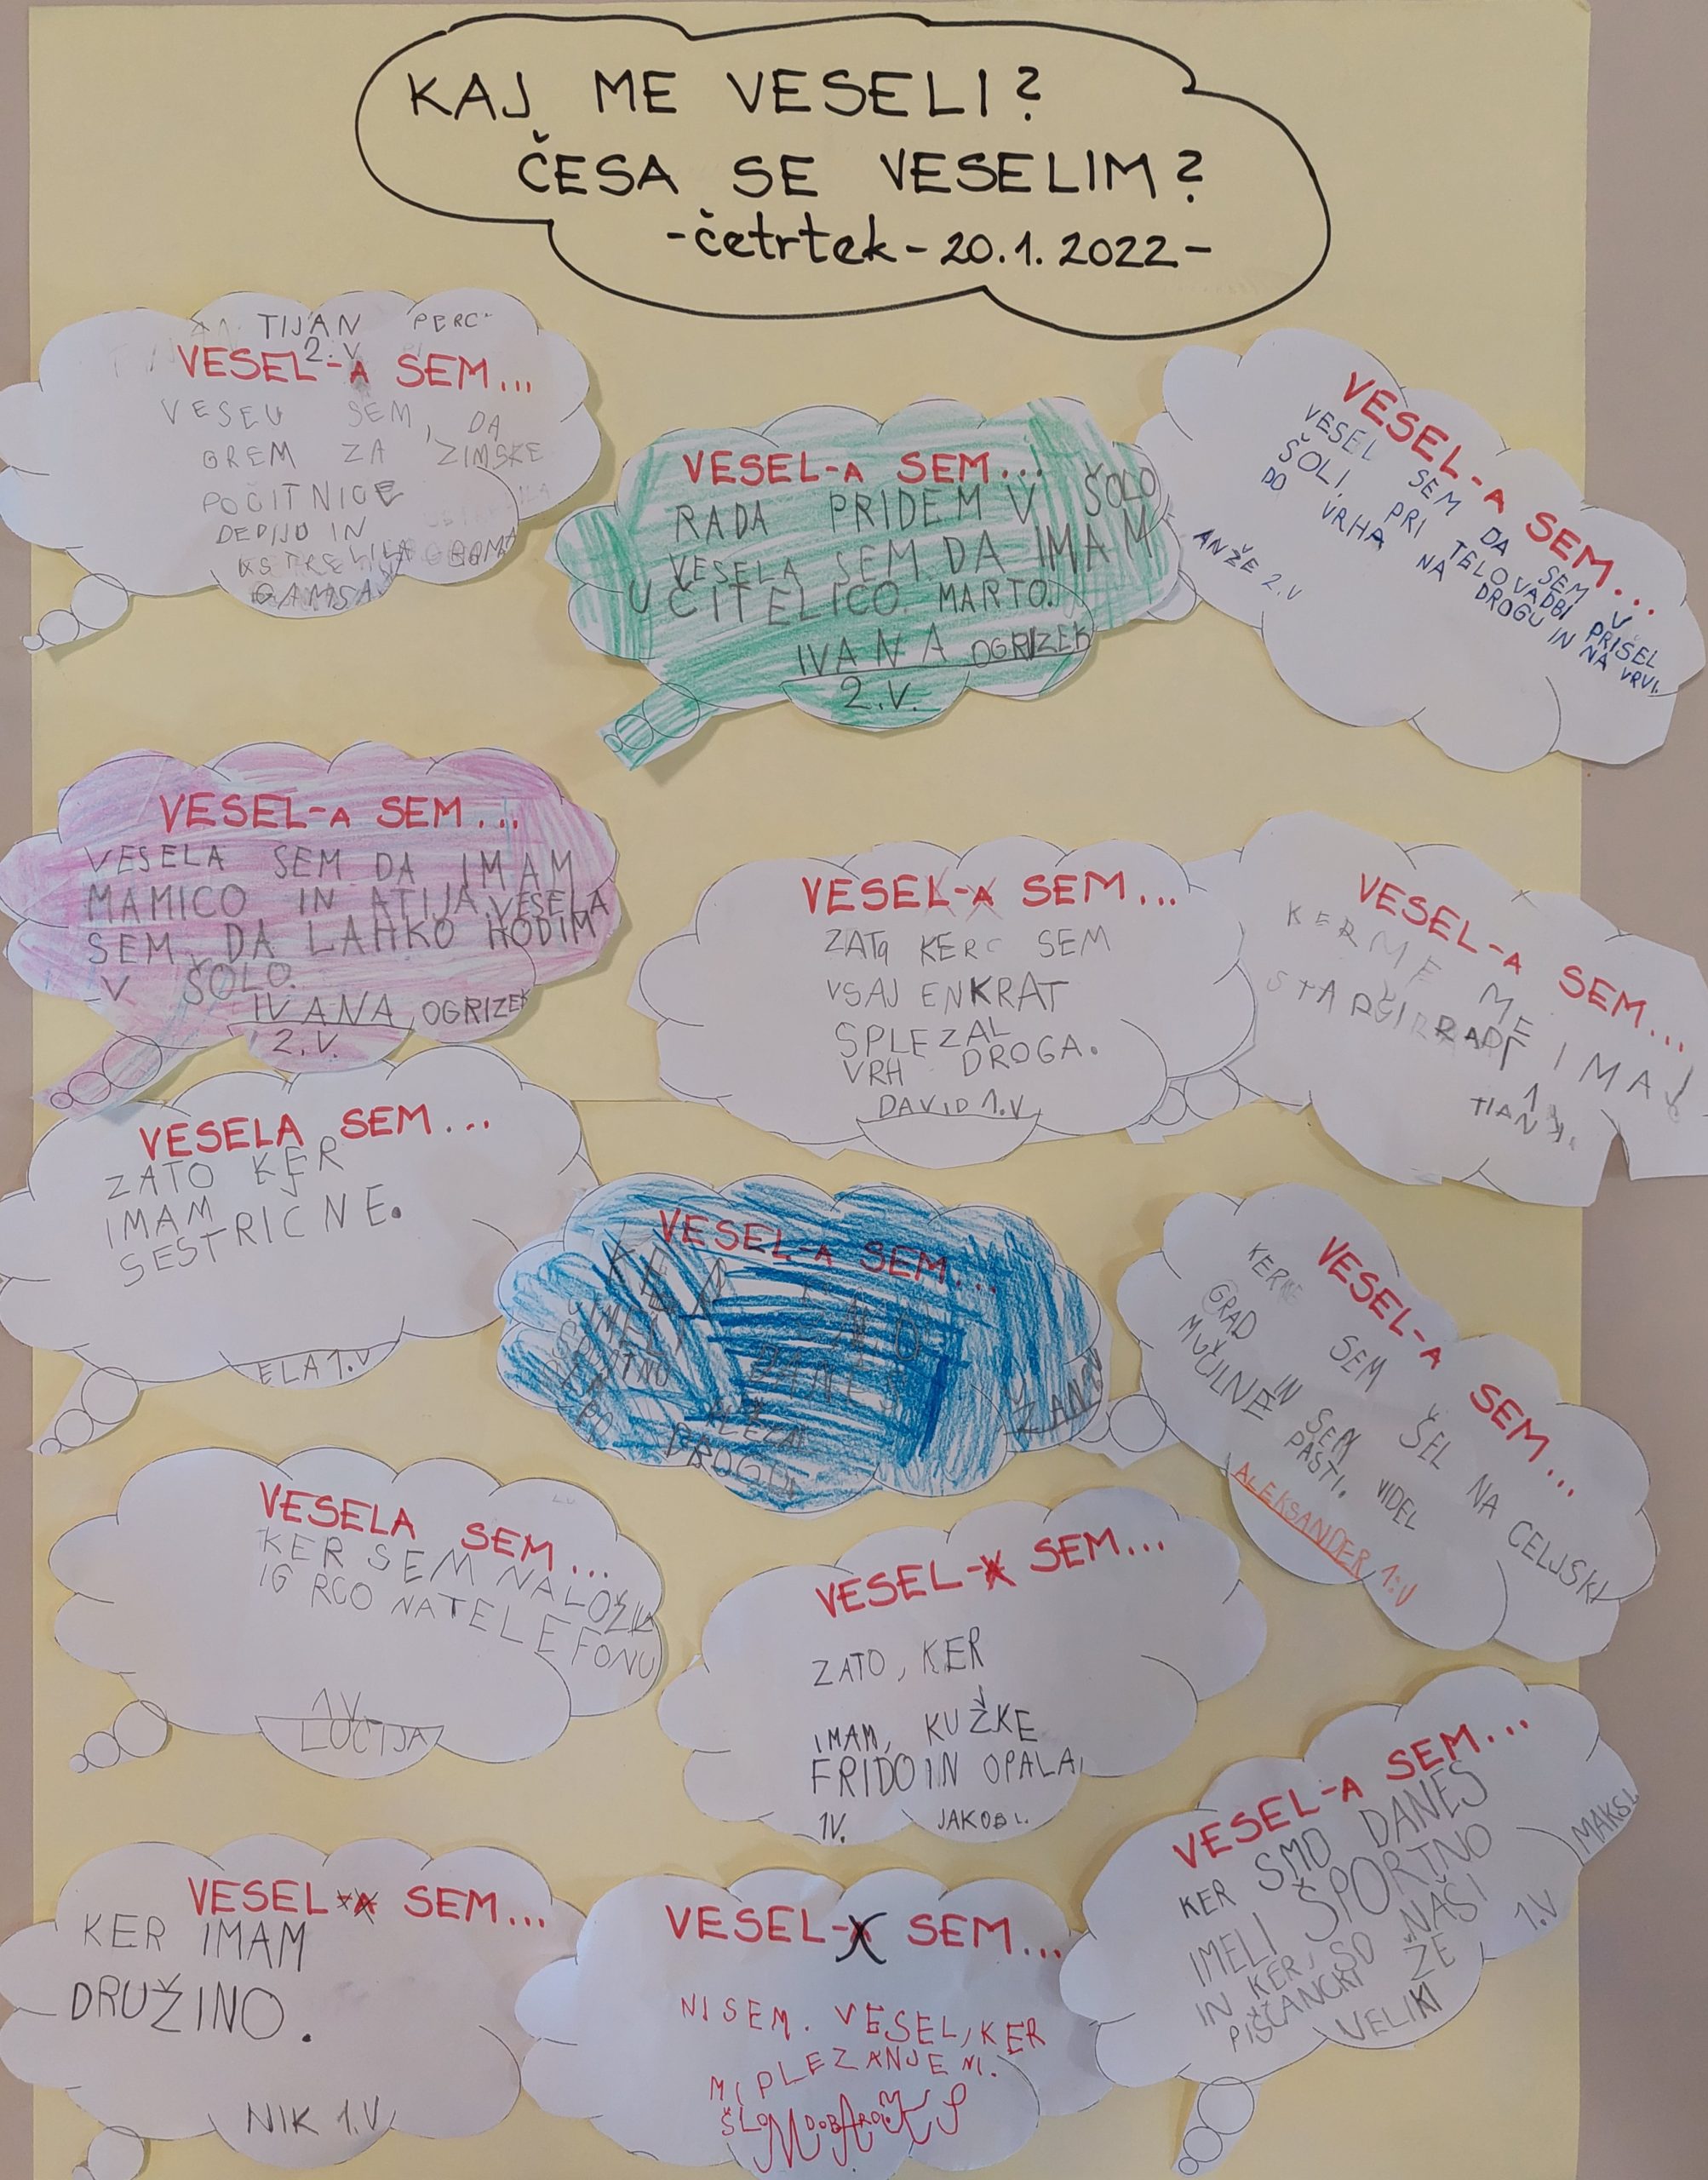 KAJ ME VESELI?
ČESA SE VESELIM?
-četrtek-20.1.2022-
TIJAN PERC
2.V
VESEL-A SEM...
VESEU SEM, DA
GREM ZA ZIMSKE
POČITNICE
DEDIJU IN
GAMSA
VESEL-A SEM...
RADA PRIDEM V ŠOLO
VESELA SEM DA IMAM
UČITELICO MARTO.
IVANA OGRIZEK
2.V.
VESEL-A SEM...
VESEL SEM DA SEM V
ŠOLI, PRI TELOVADBI PRIŠEL
DO VRHA NA DROGU IN NA VRVI.
ANŽE 2.V
VESEL-A SEM...
VESELA SEM DA IMAM
MAMICO IN ATIJA. VESELA
SEM, DA LAHKO HODIM
V ŠOLO.
IVANA OGRIZEK
2.V.
VESEL-A SEM...
ZATO KER SEM
VSAJ ENKRAT
SPLEZAL
VRH DROGA.
DAVID 1.V
VESEL-A SEM...
KER ME
STARŠI RADI IMAJ
TIAN 1.V.
VESELA SEM...
ZATO KER
IMAM
SESTRIČNE.
ELA 1.V
VESEL-A SEM...
IMELI
ŠPORTNO DANES
PO
DROGU
ŽAN
VESEL-A SEM...
KER SEM ŠEL NA CELJSKI
GRAD IN SEM VIDEL
MUČILNE PASTI.
ALEKSANDER 1.V
VESELA SEM...
KER SEM NALOŽILA
IGRCO NA TELEFONU
1.V
LUCIJA
VESEL-A SEM...
ZATO, KER
IMAM, KUŽKE
FRIDO IN OPALA
1V. JAKOB L.
VESEL-A SEM...
KER SMO DANES
IMELI ŠPORTNO
IN KER, SO NAŠI
PIŠČANCKI ŽE
VELIKI
MAKS L.
1.V
VESEL-A SEM...
KER IMAM
DRUŽINO.
NIK 1.V
VESEL-A SEM...
NISEM. VESEL, KER
MI PLEZANJE NI.
ŠLO DOBRO